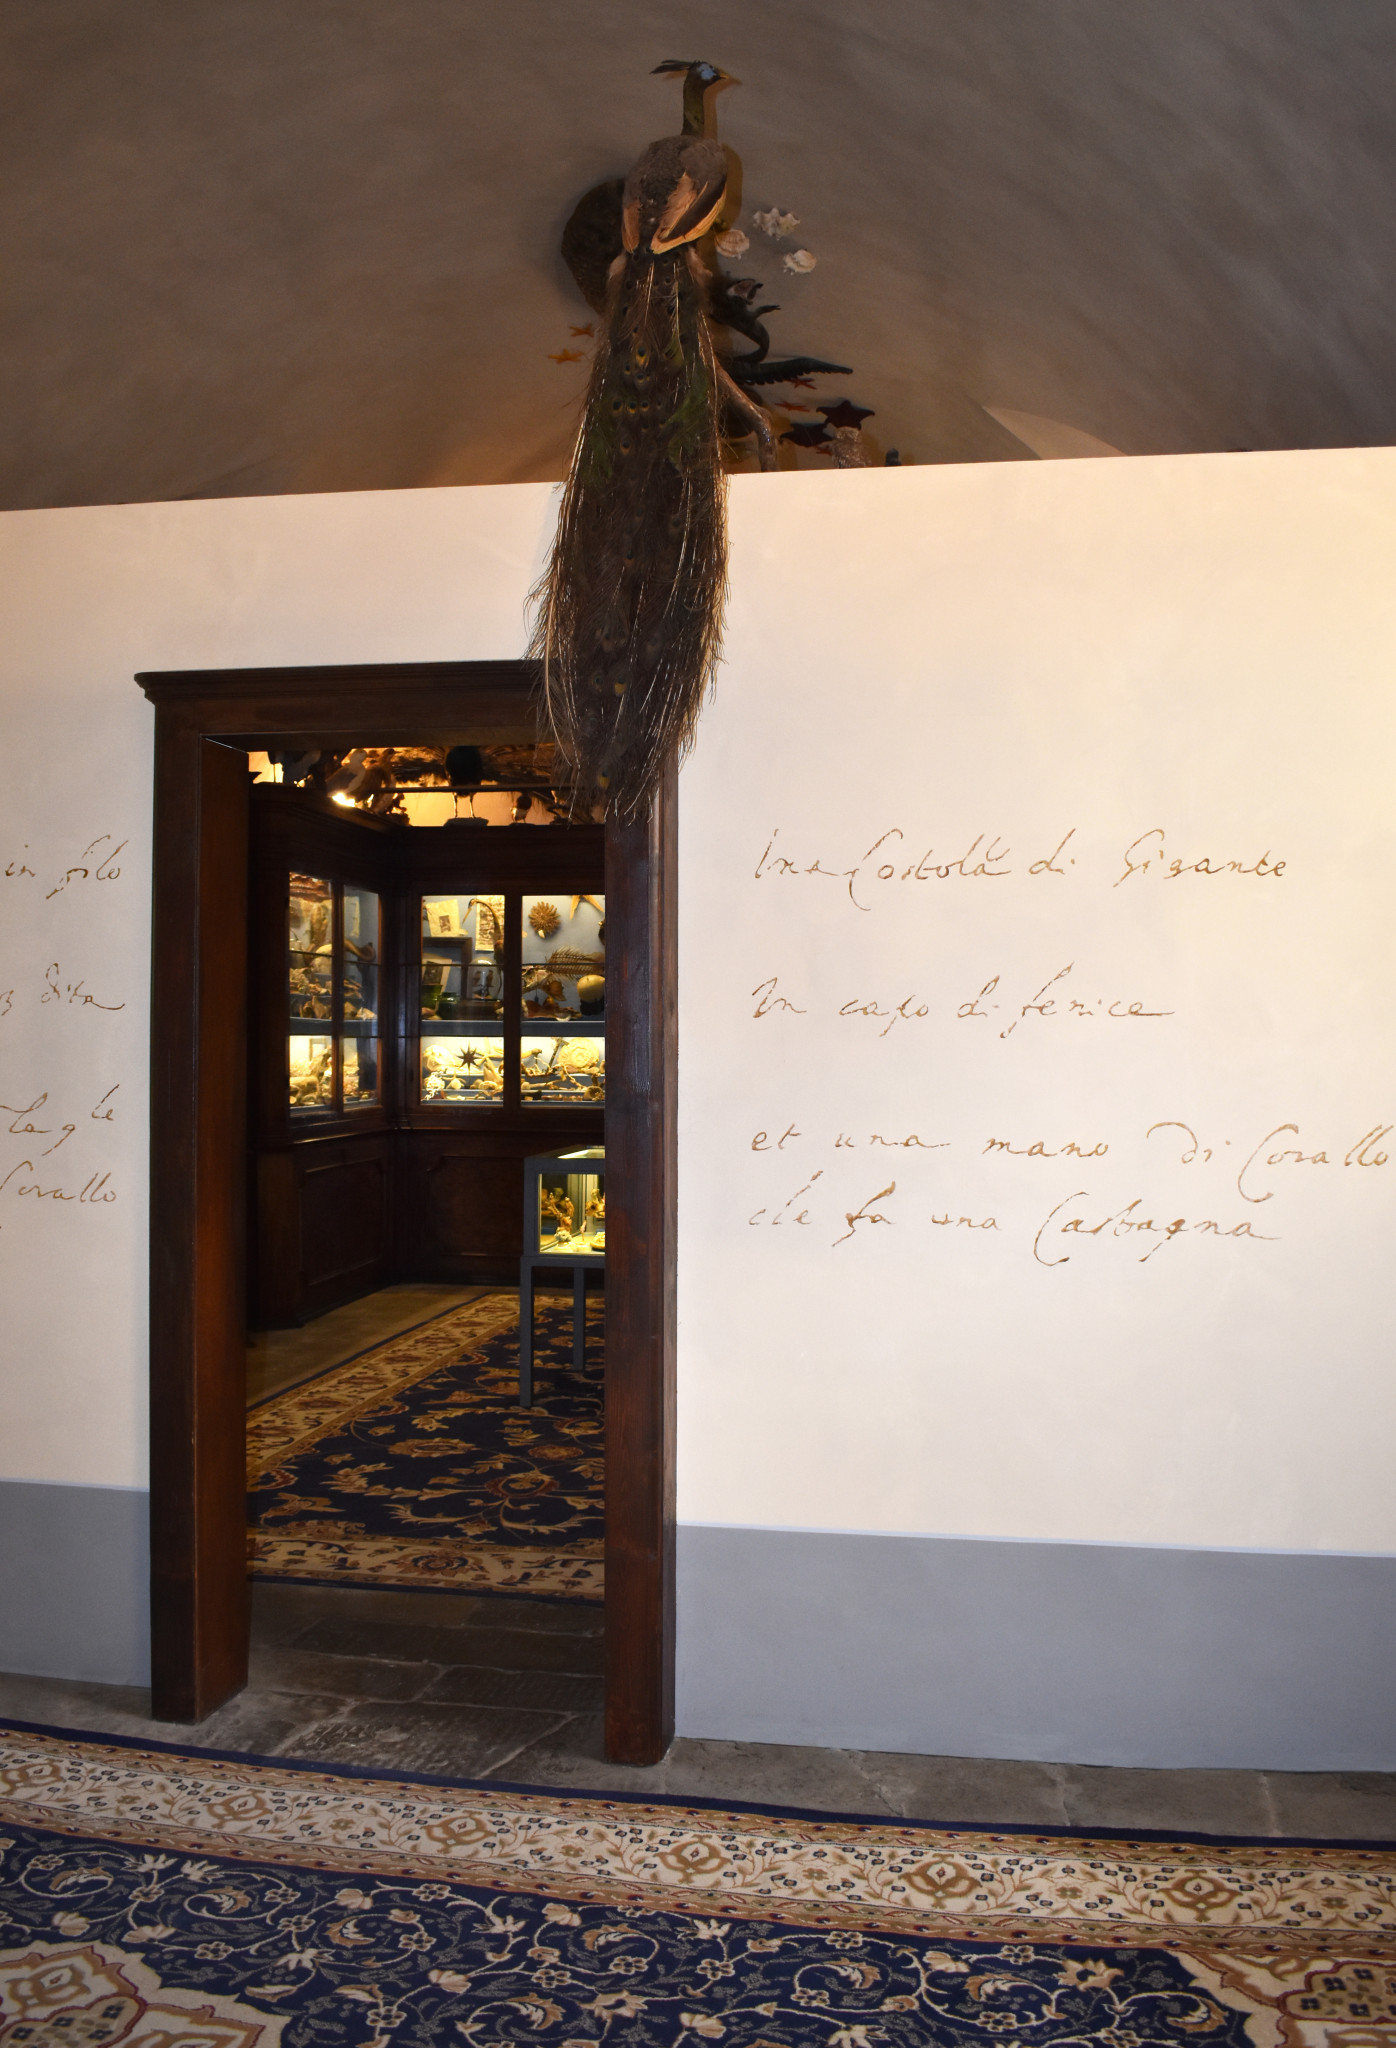 in filo
Dita
Corallo
Una Costola di Gigante
Un capo di fenice
et una mano di Corallo
che fa una Castagna